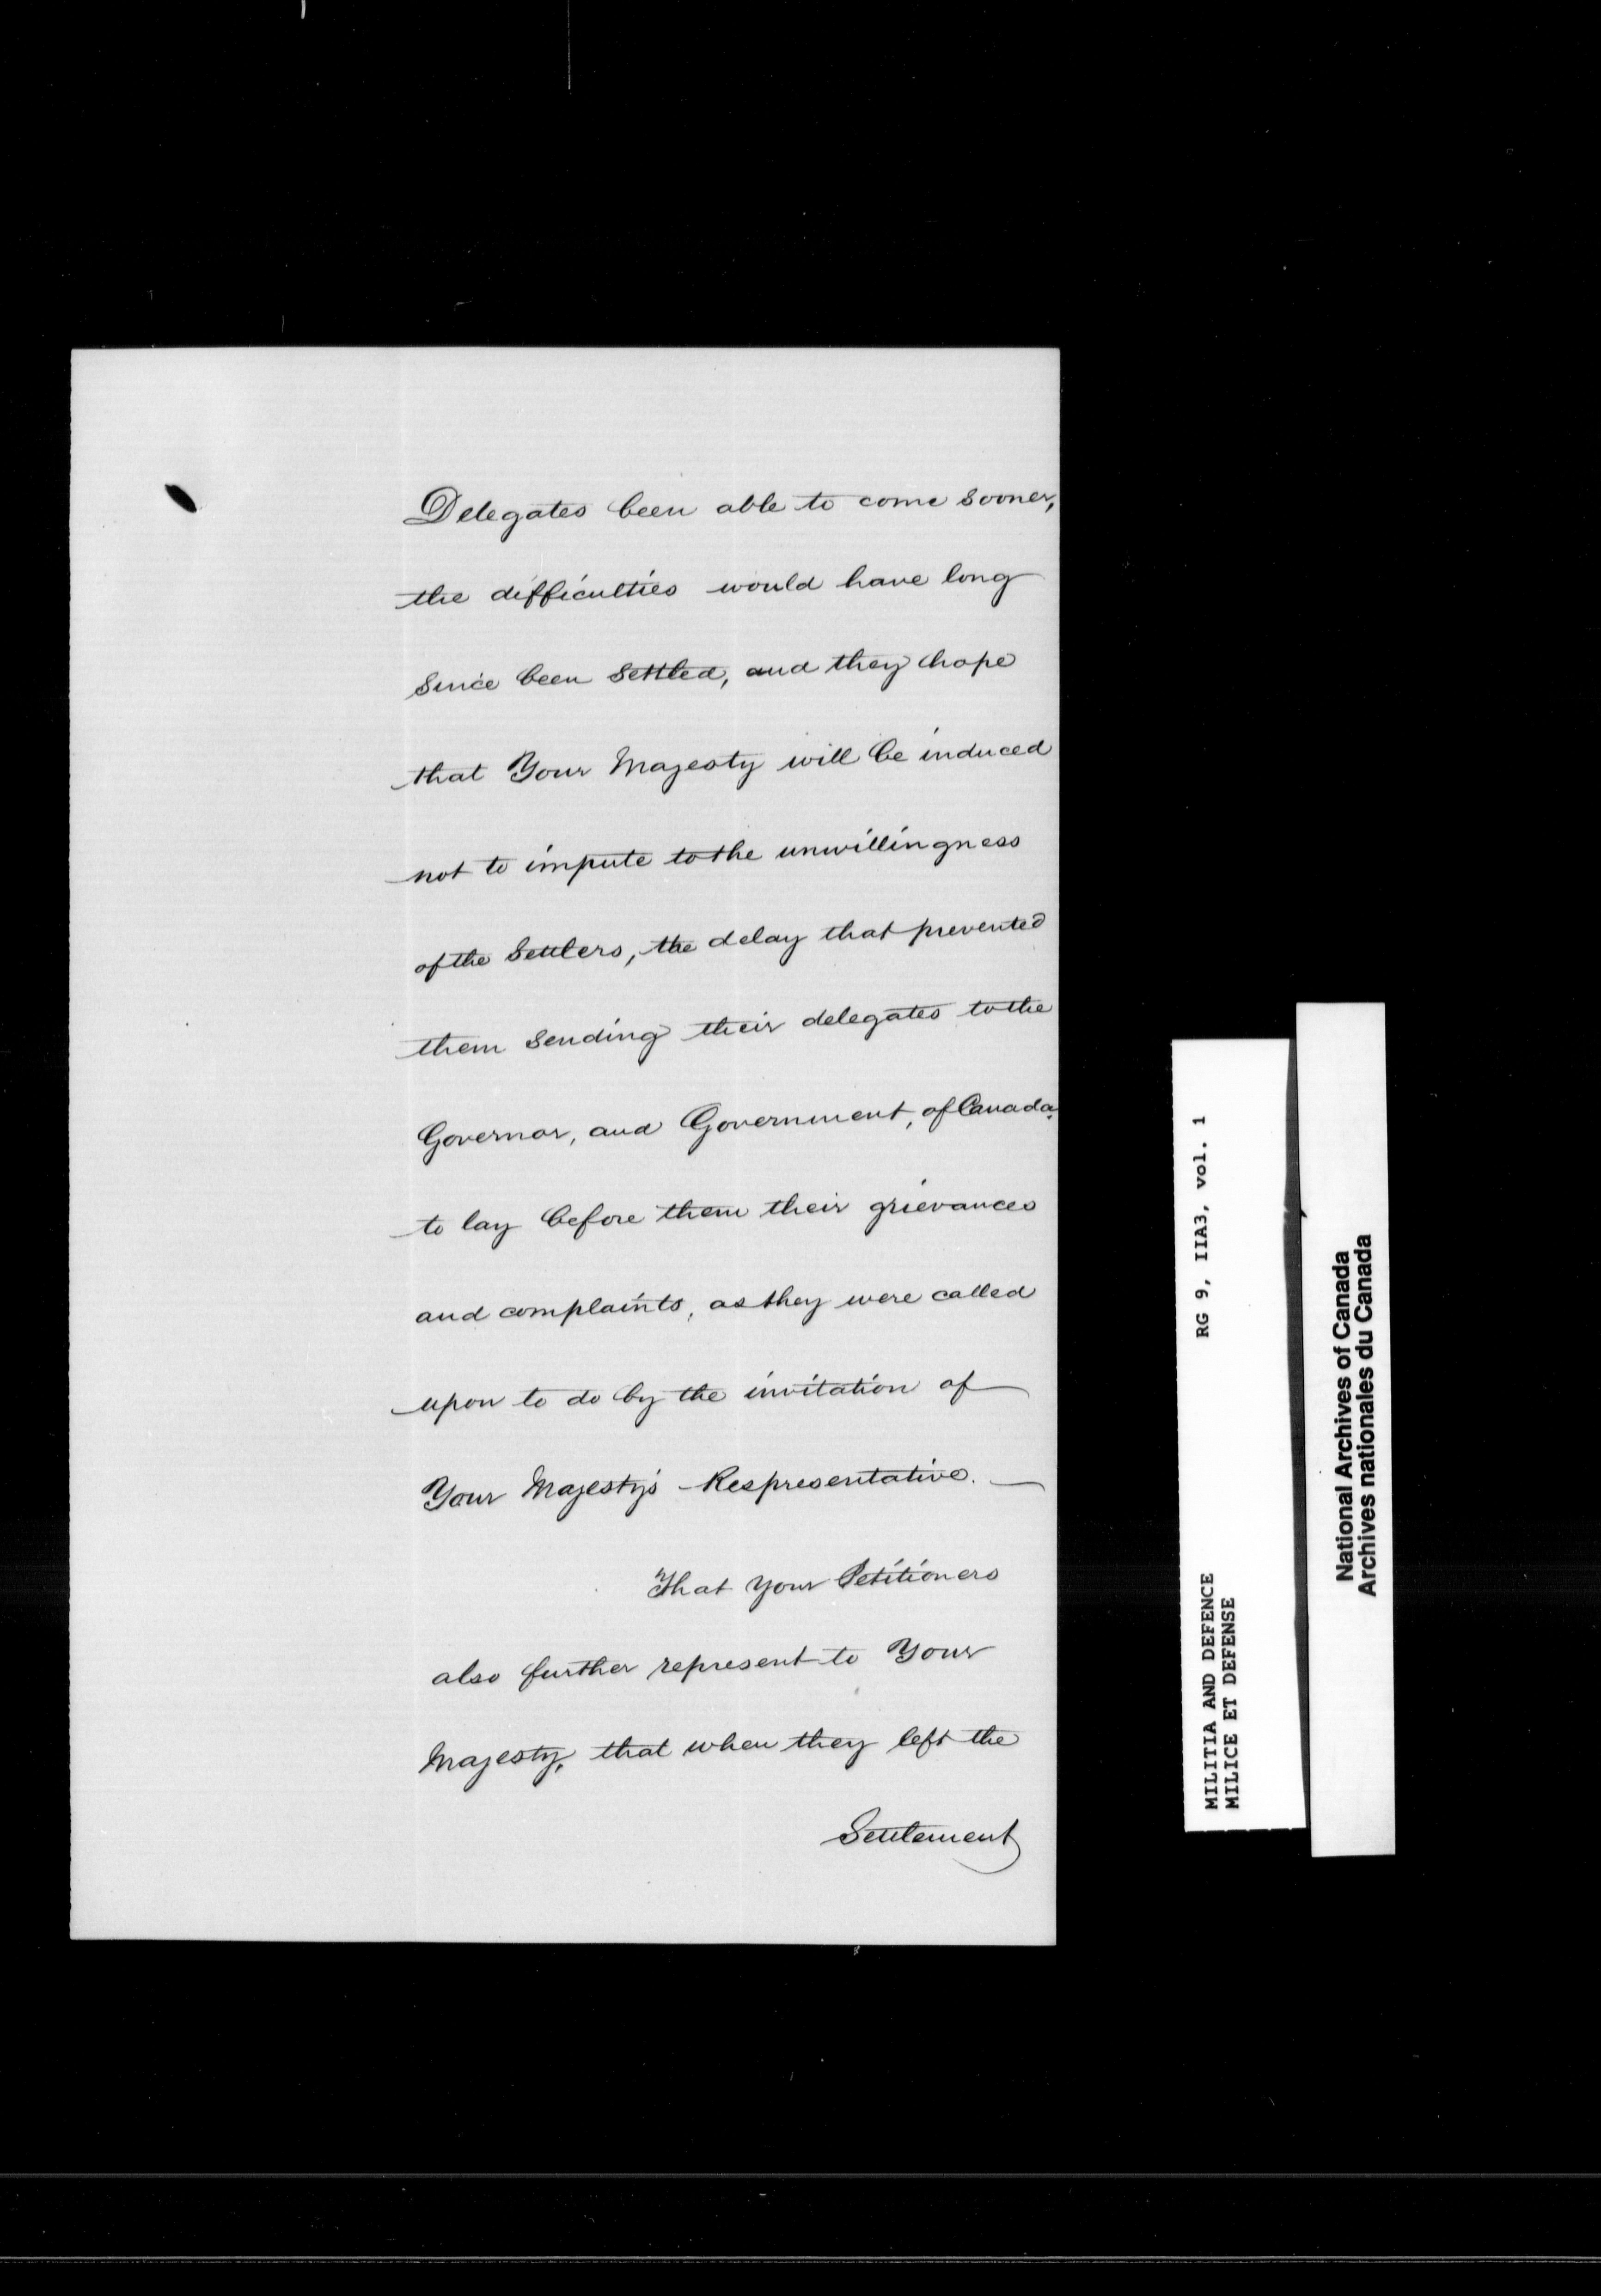 Delegates been able to come sooner,
the difficulties would have long
since been settled, and they hope
that Your Majesty will be induced
not to impute to the unwillingness
of the Settlers, the delay that prevented
them sending their delegates to the
Governor, and Government, of Canada,
to lay before them their grievances
and complaints, as they were called
upon to do by the invitation of
Your Majesty's Respresentative. —
That your Petitioners
also further represent to Your
Majesty, that when they left the
Settlement
MILITIA AND DEFENCE RG 9, IIA3, vol. 1
MILICE ET DEFENSE
National Archives of Canada
Archives nationales du Canada